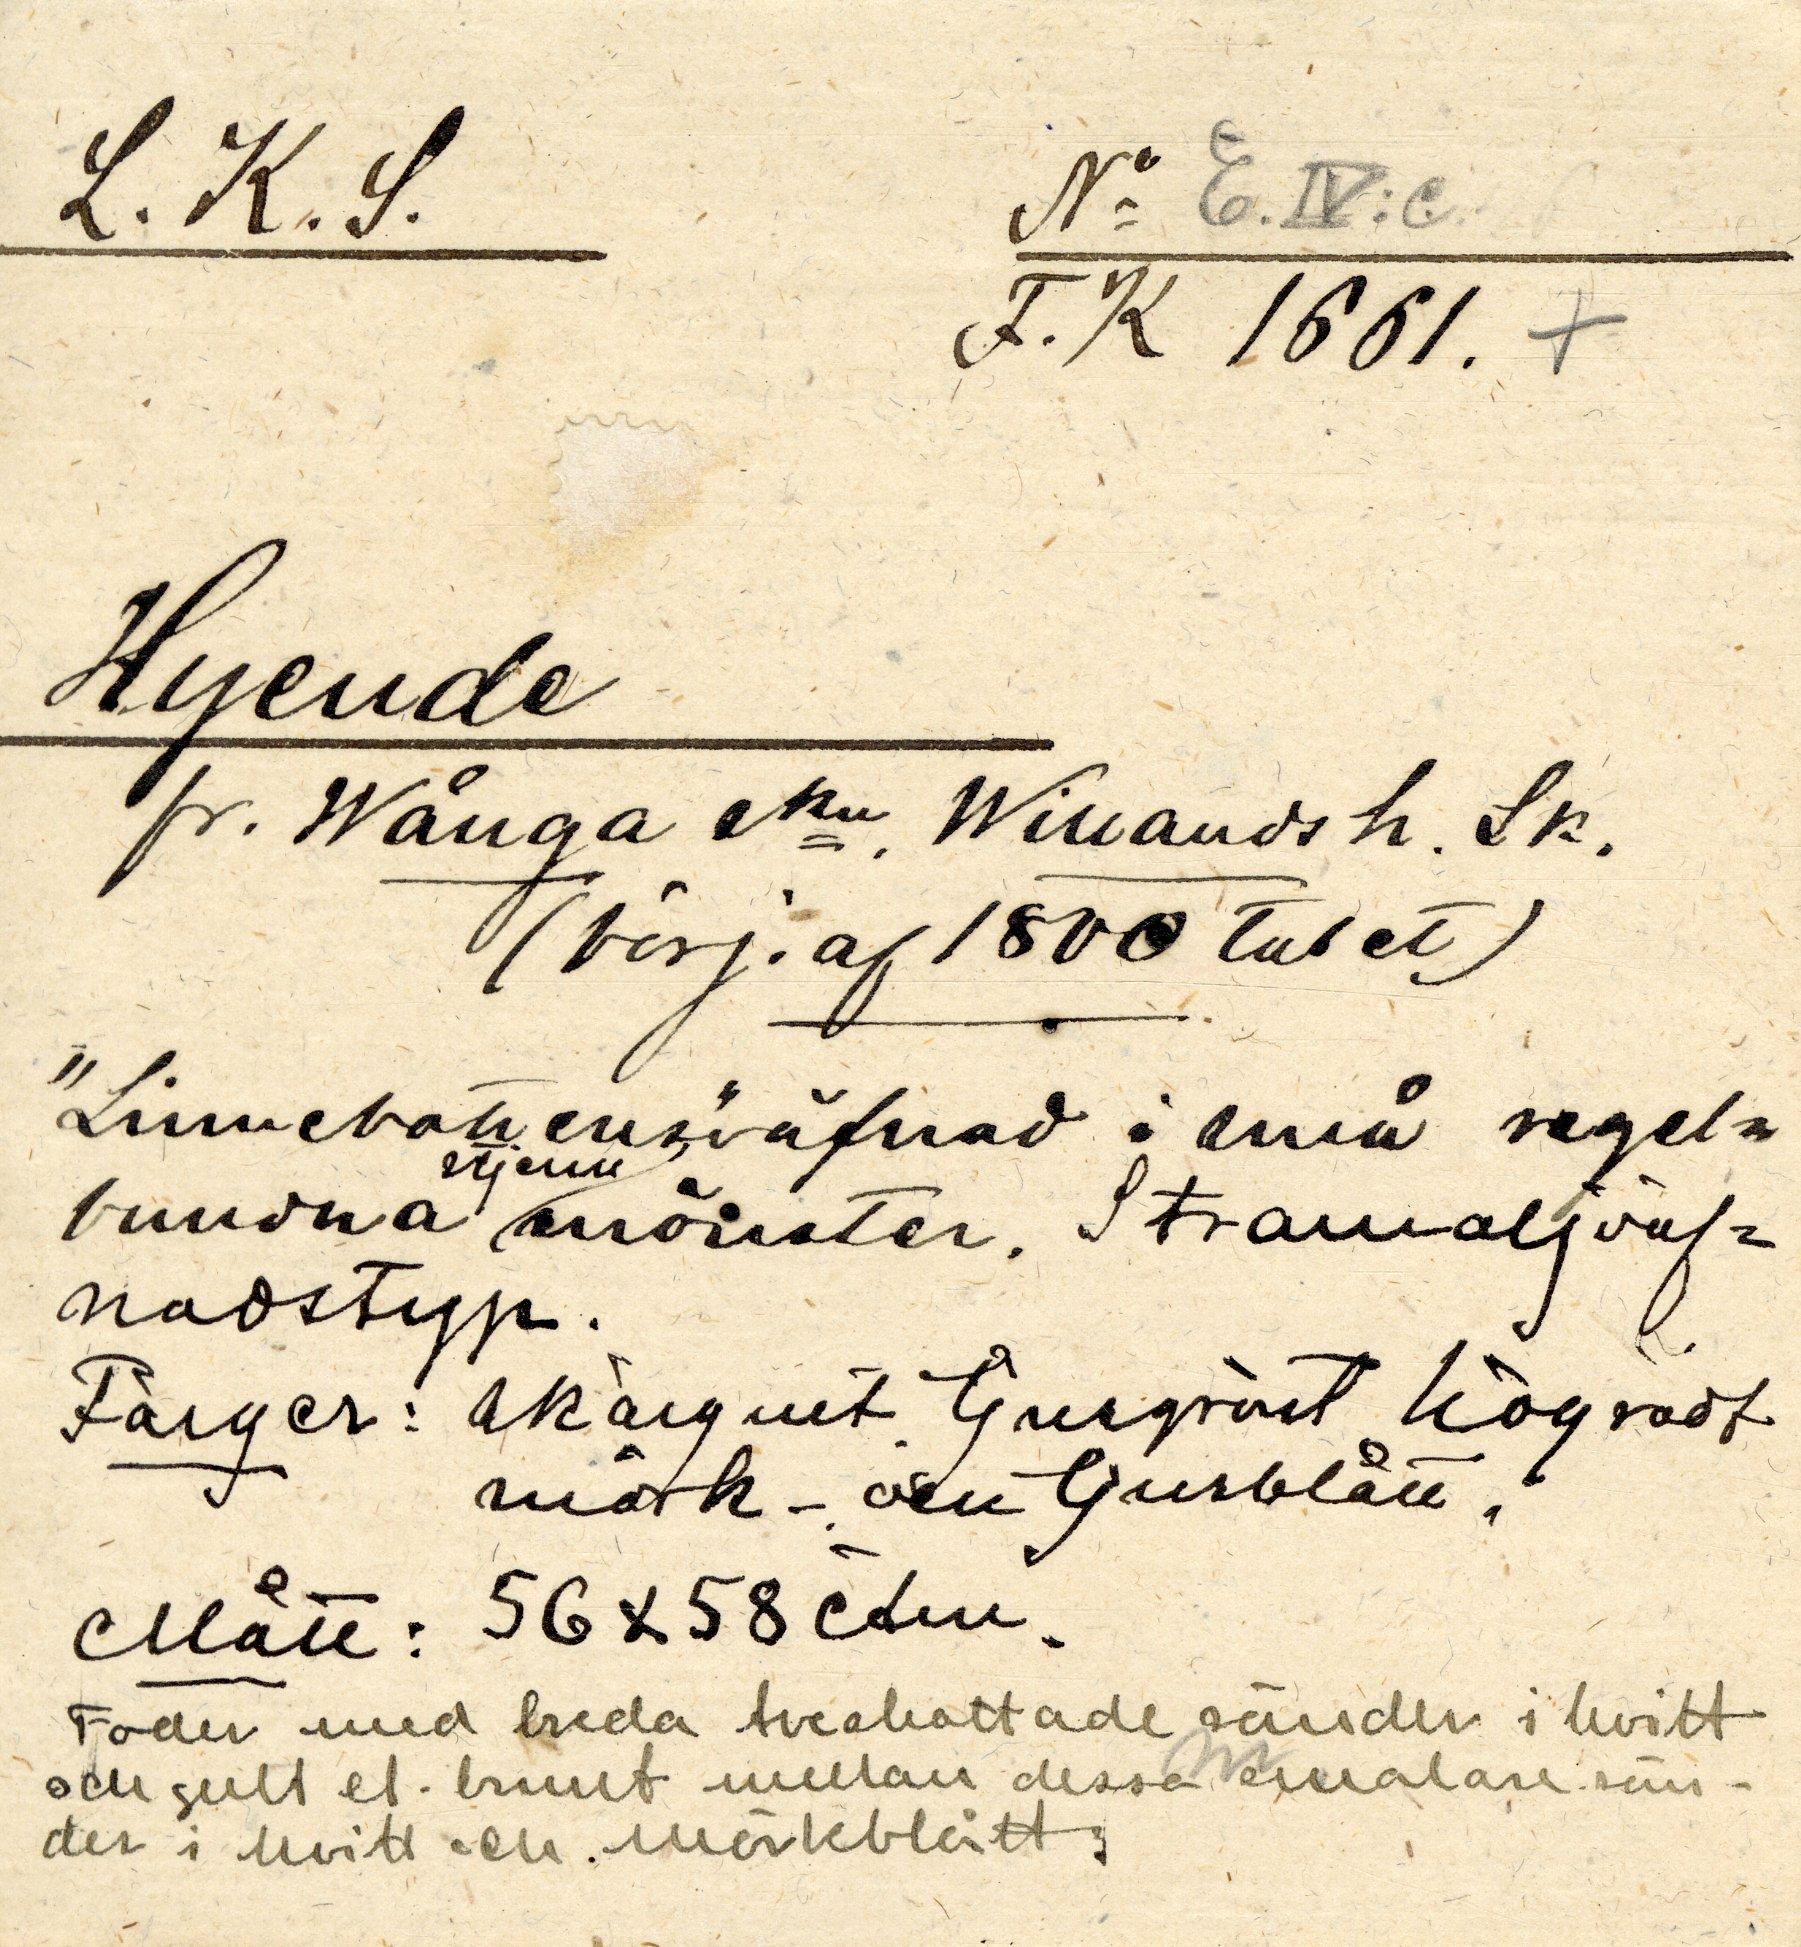 L. K. S.
Nº E. IV: c.
F. K 1661. +
Hyende
fr. Wånga skn. Willands h. Sk.
(börj. af 1800 talet)
"Linnebottensväfnad i små regel=
bundna stjern mönster. Stramaljväf=
nadstyp.
Färger: skärgult. ljusgrönt högrödt
mörk - och ljusblått.
Mått: 56 x 58 ctm.
Foder med breda tveskottade ränder i hvitt
och gult el. brunt mellan dessa smalare rän-
der i hvitt och mörkblått;